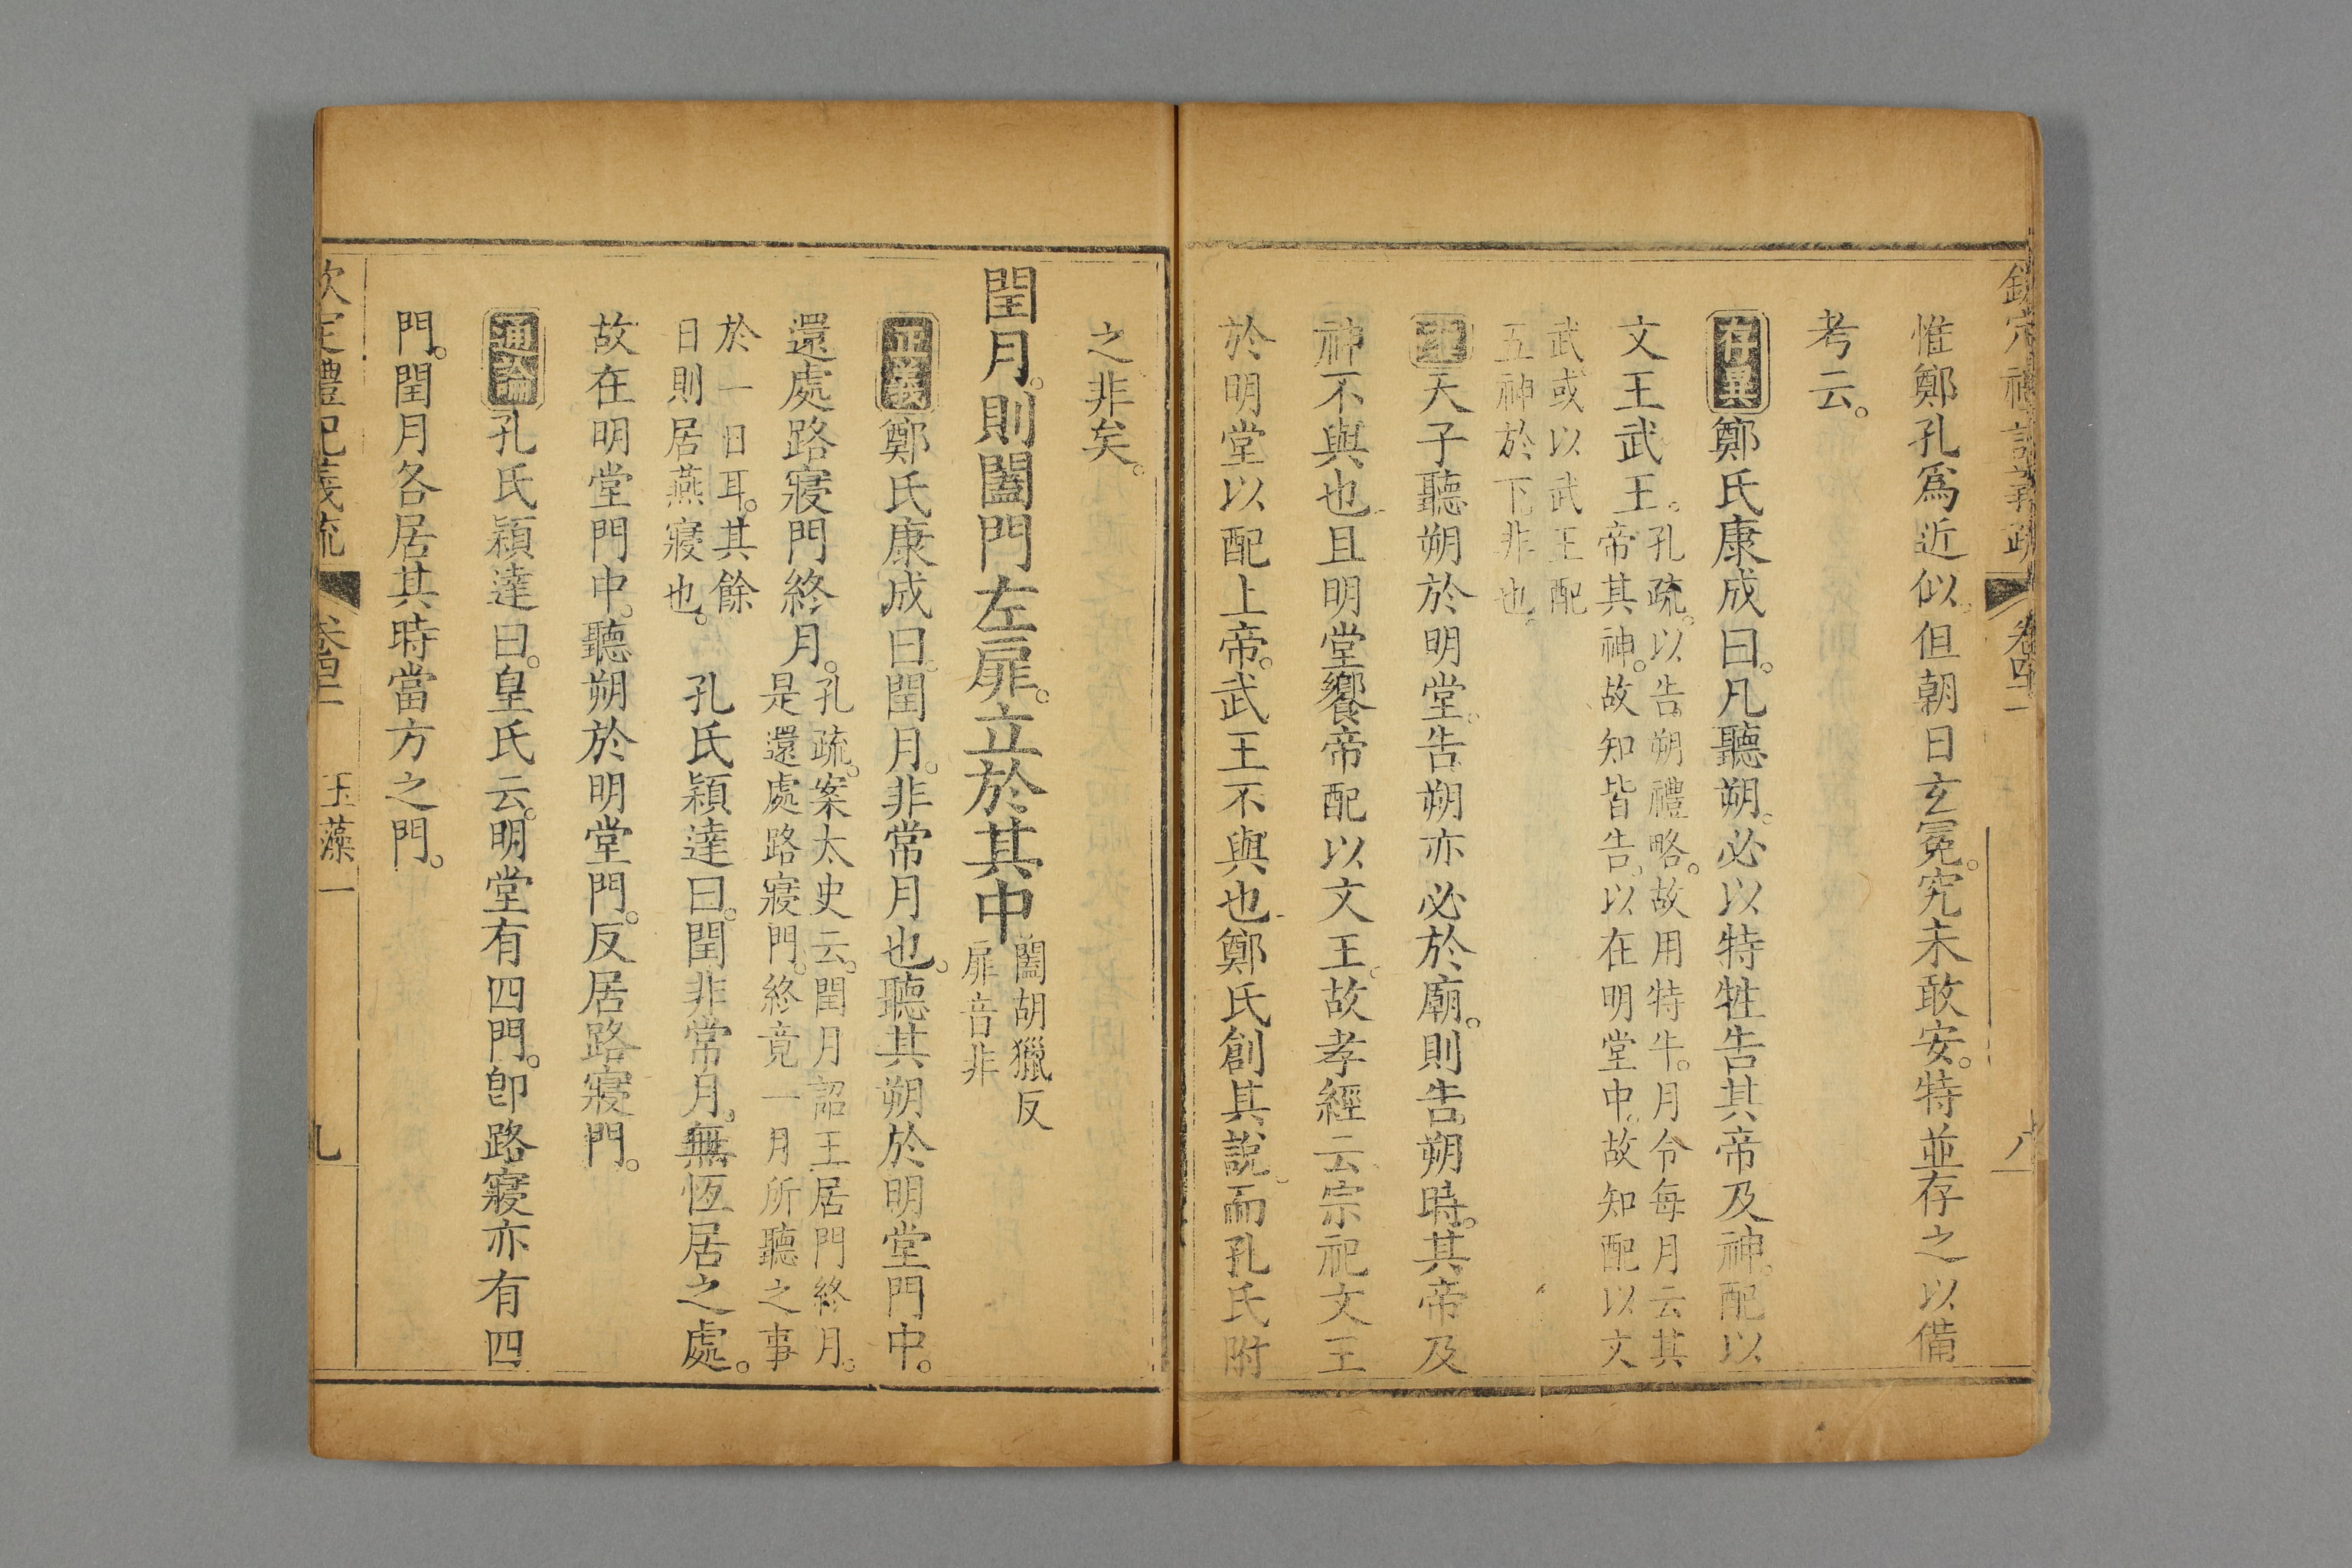 欽定禮記義疏 卷四十一 八
惟鄭孔爲近似。但朝日玄冕。究未敢安。特並存之以備
考云。
存異 鄭氏康成曰。凡聽朔。必以特牲告其帝及神。配以
文王武王。
孔疏。以告朔禮略。故用特牛。月令每月云其
帝其神。故知皆告。以在明堂中。故知配以文
武或以武王配
五神於下非也。
天子聽朔於明堂。告朔亦必於廟。則告朔時。其帝及
神不與也。且明堂饗帝配以文王。故孝經云宗祀文王
於明堂以配上帝。武王不與也。鄭氏創其說。而孔氏附
之非矣。
閏月。則闔門左扉。立於其中
闔胡獵反
扉音非
正義 鄭氏康成曰。閏月。非常月也。聽其朔於明堂門中。
還處路寢門終月。
孔疏。案太史云。閏月詔王居門終月。
是還處路寢門。終竟一月所聽之事
於一日耳。其餘
日則居燕寢也。
孔氏穎達曰。閏非常月。無恆居之處。
故在明堂門中。聽朔於明堂門。反居路寢門。
通論 孔氏穎達曰。皇氏云。明堂有四門。卽路寢亦有四
門。閏月各居其時當方之門。
欽定禮記義疏 卷四十一 玉藻一 九